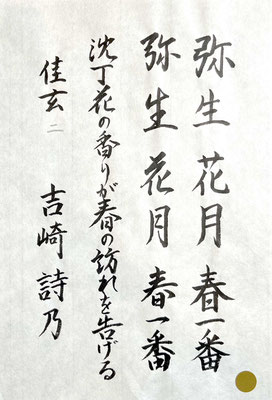 弥生 花月 春一番
弥生 花月 春一番
沈丁花の香りが春の訪れを告げる
佳玄 二 吉崎 詩乃